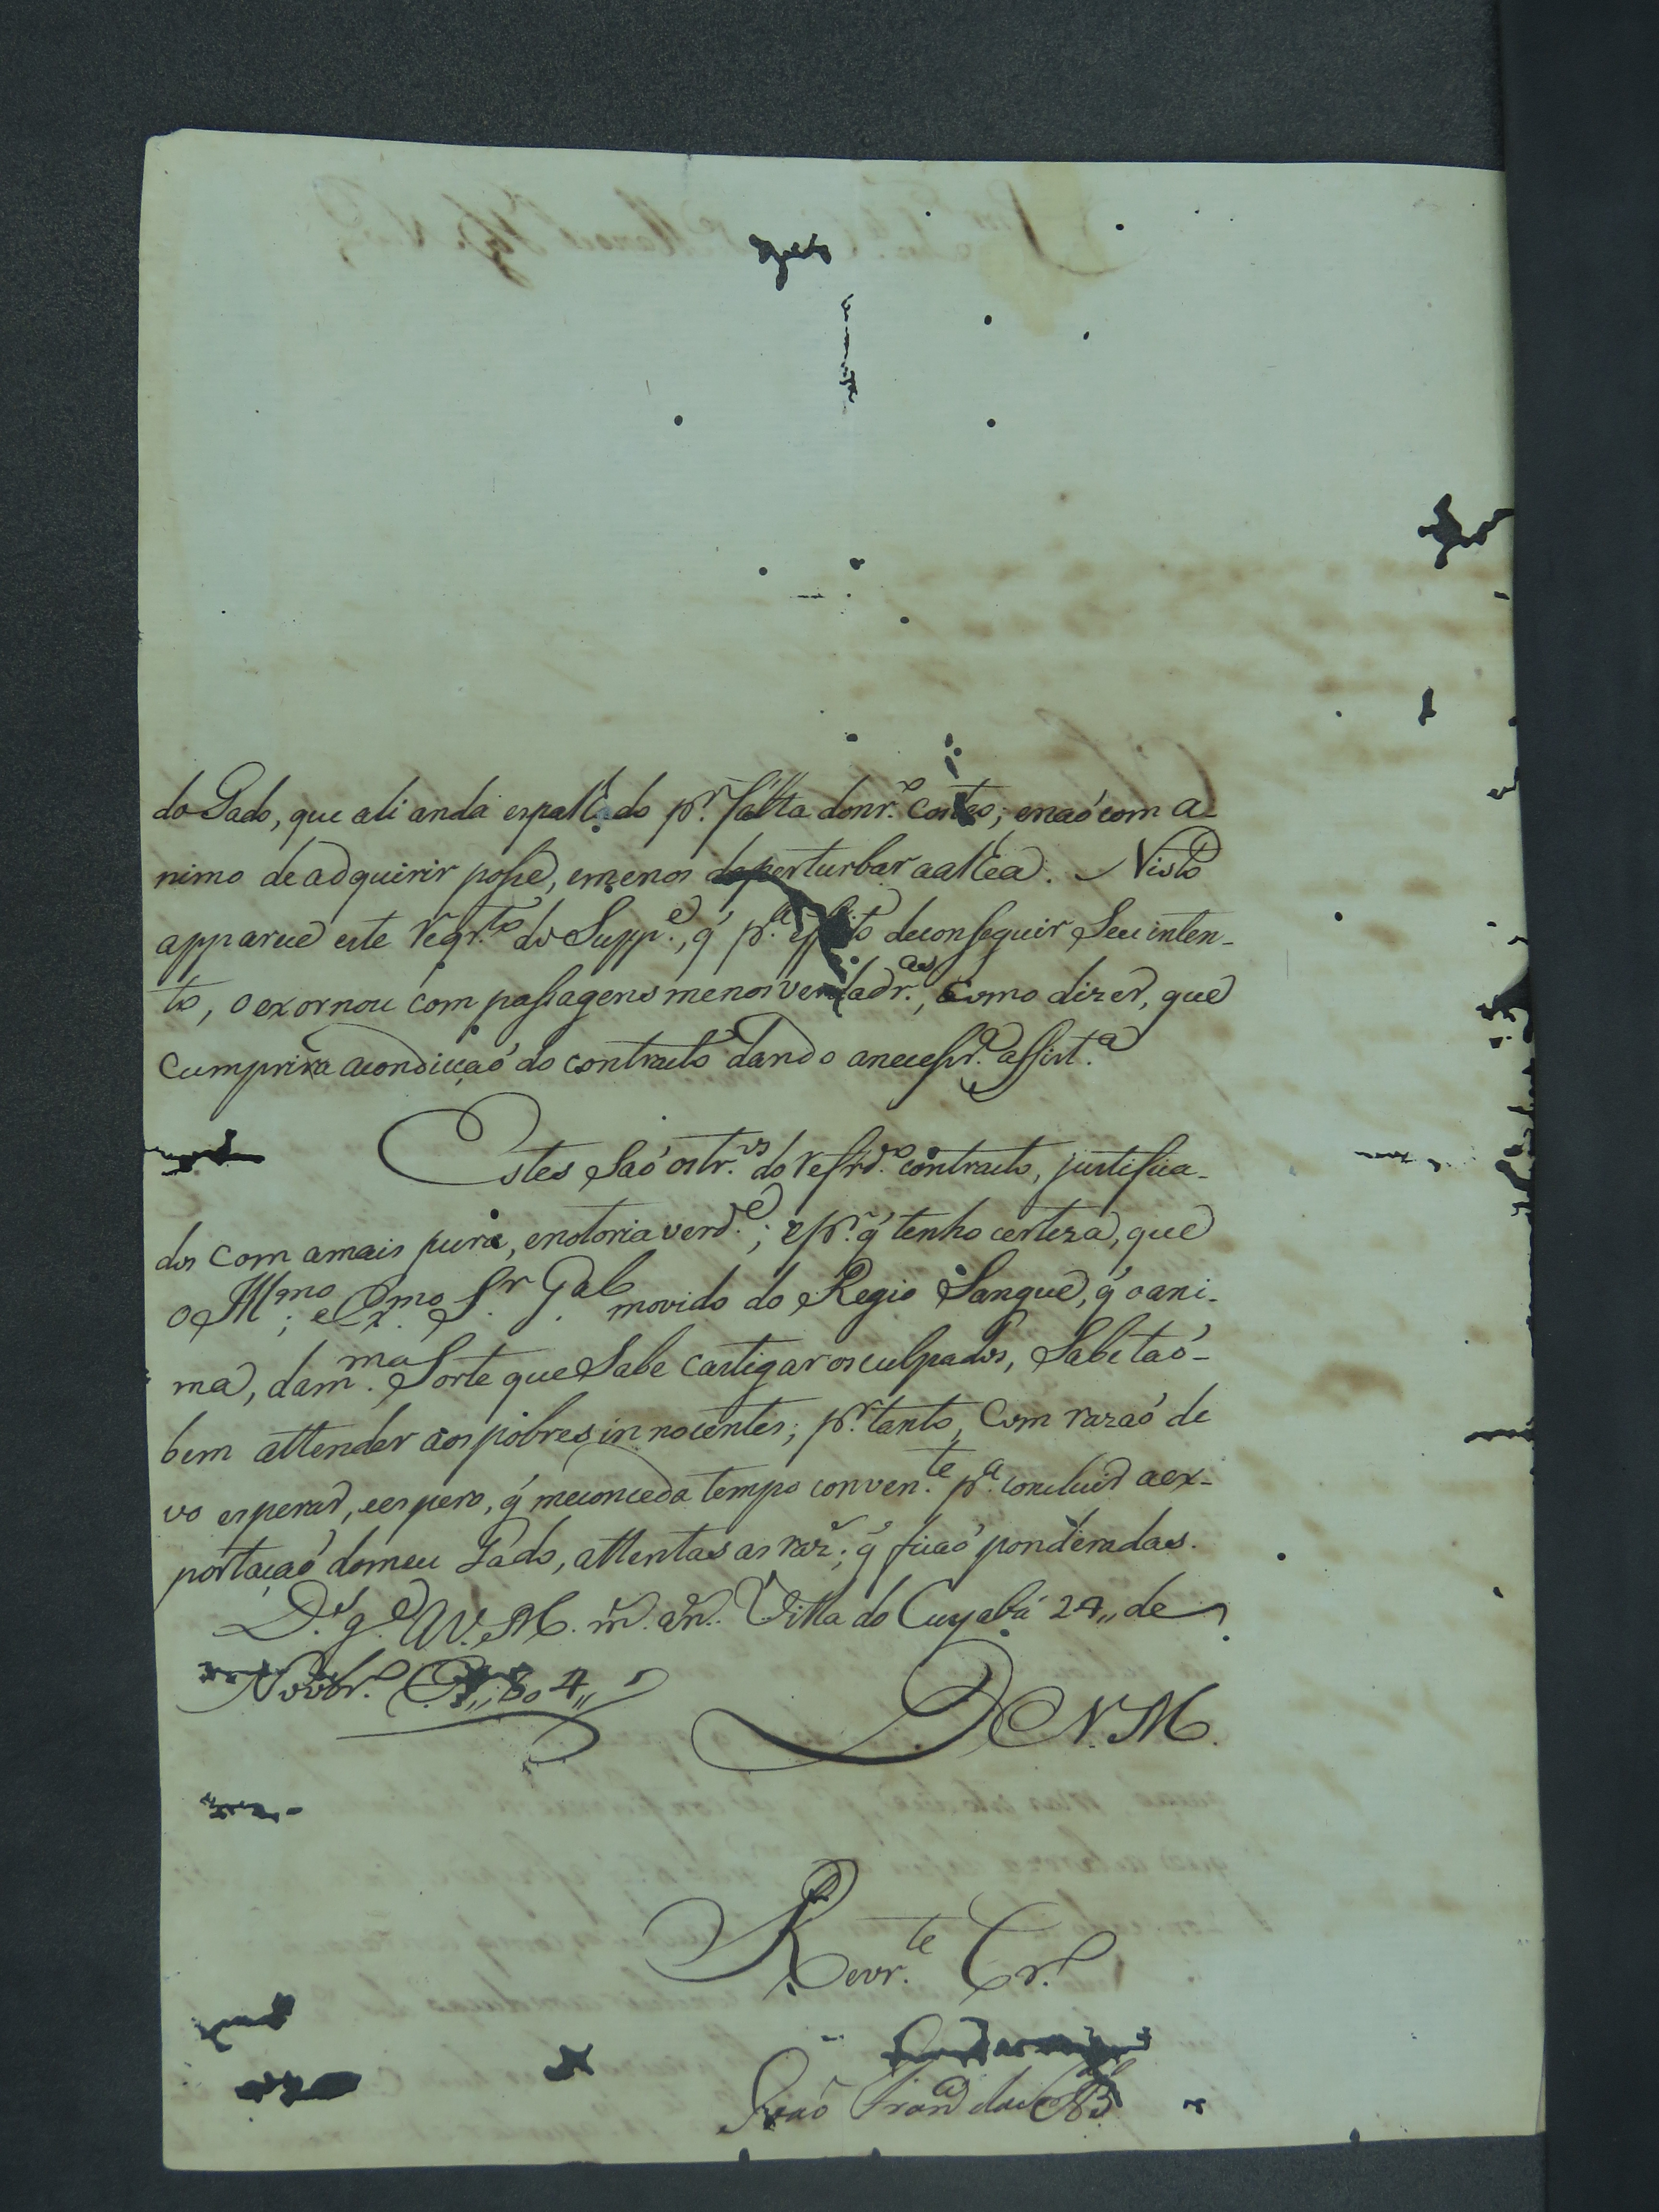 do Gado, que ali anda espalhado pr. falta donr.º costeo; enaó com a-
nimo de adquirir posse, emenos deperturbar aaldea. Nisto
apparece este reqr.to do Supp.e, q̃ p.a effeito deconseguir Seu inten-
to, o exornou com passagens menos verdadr.as, como dizer, que
cumprira acondiçaó do contracto dando anecessr.a assist.a
Estes Saó ostr.os do refrd.º contracto, justifica-
dos com amais pura, enotoria verd.e; epr. q̃ tenho certeza, que
o Ill.mo; e Ex.mo S.r Gal. movido do Regio Sangue, q̃ oani-
ma, dam.ma Sorte que Sabe castigar osculpados, Sabe taó-
bem attender aos pobres innocentes; pr. tanto, Com razaó de
vo esperar, eespero, q̃ meconceda tempo conven.te p.a concluir aex-
portaçaó domeu Gado, attentas as raz.s; q̃ ficaó ponderadas.
D.s g.e V. M. m. an. Villa do Cuyabá 24,, de
Novbr.º 804,,
D V. M.
Revr.te Cr.º
Joaó Fran